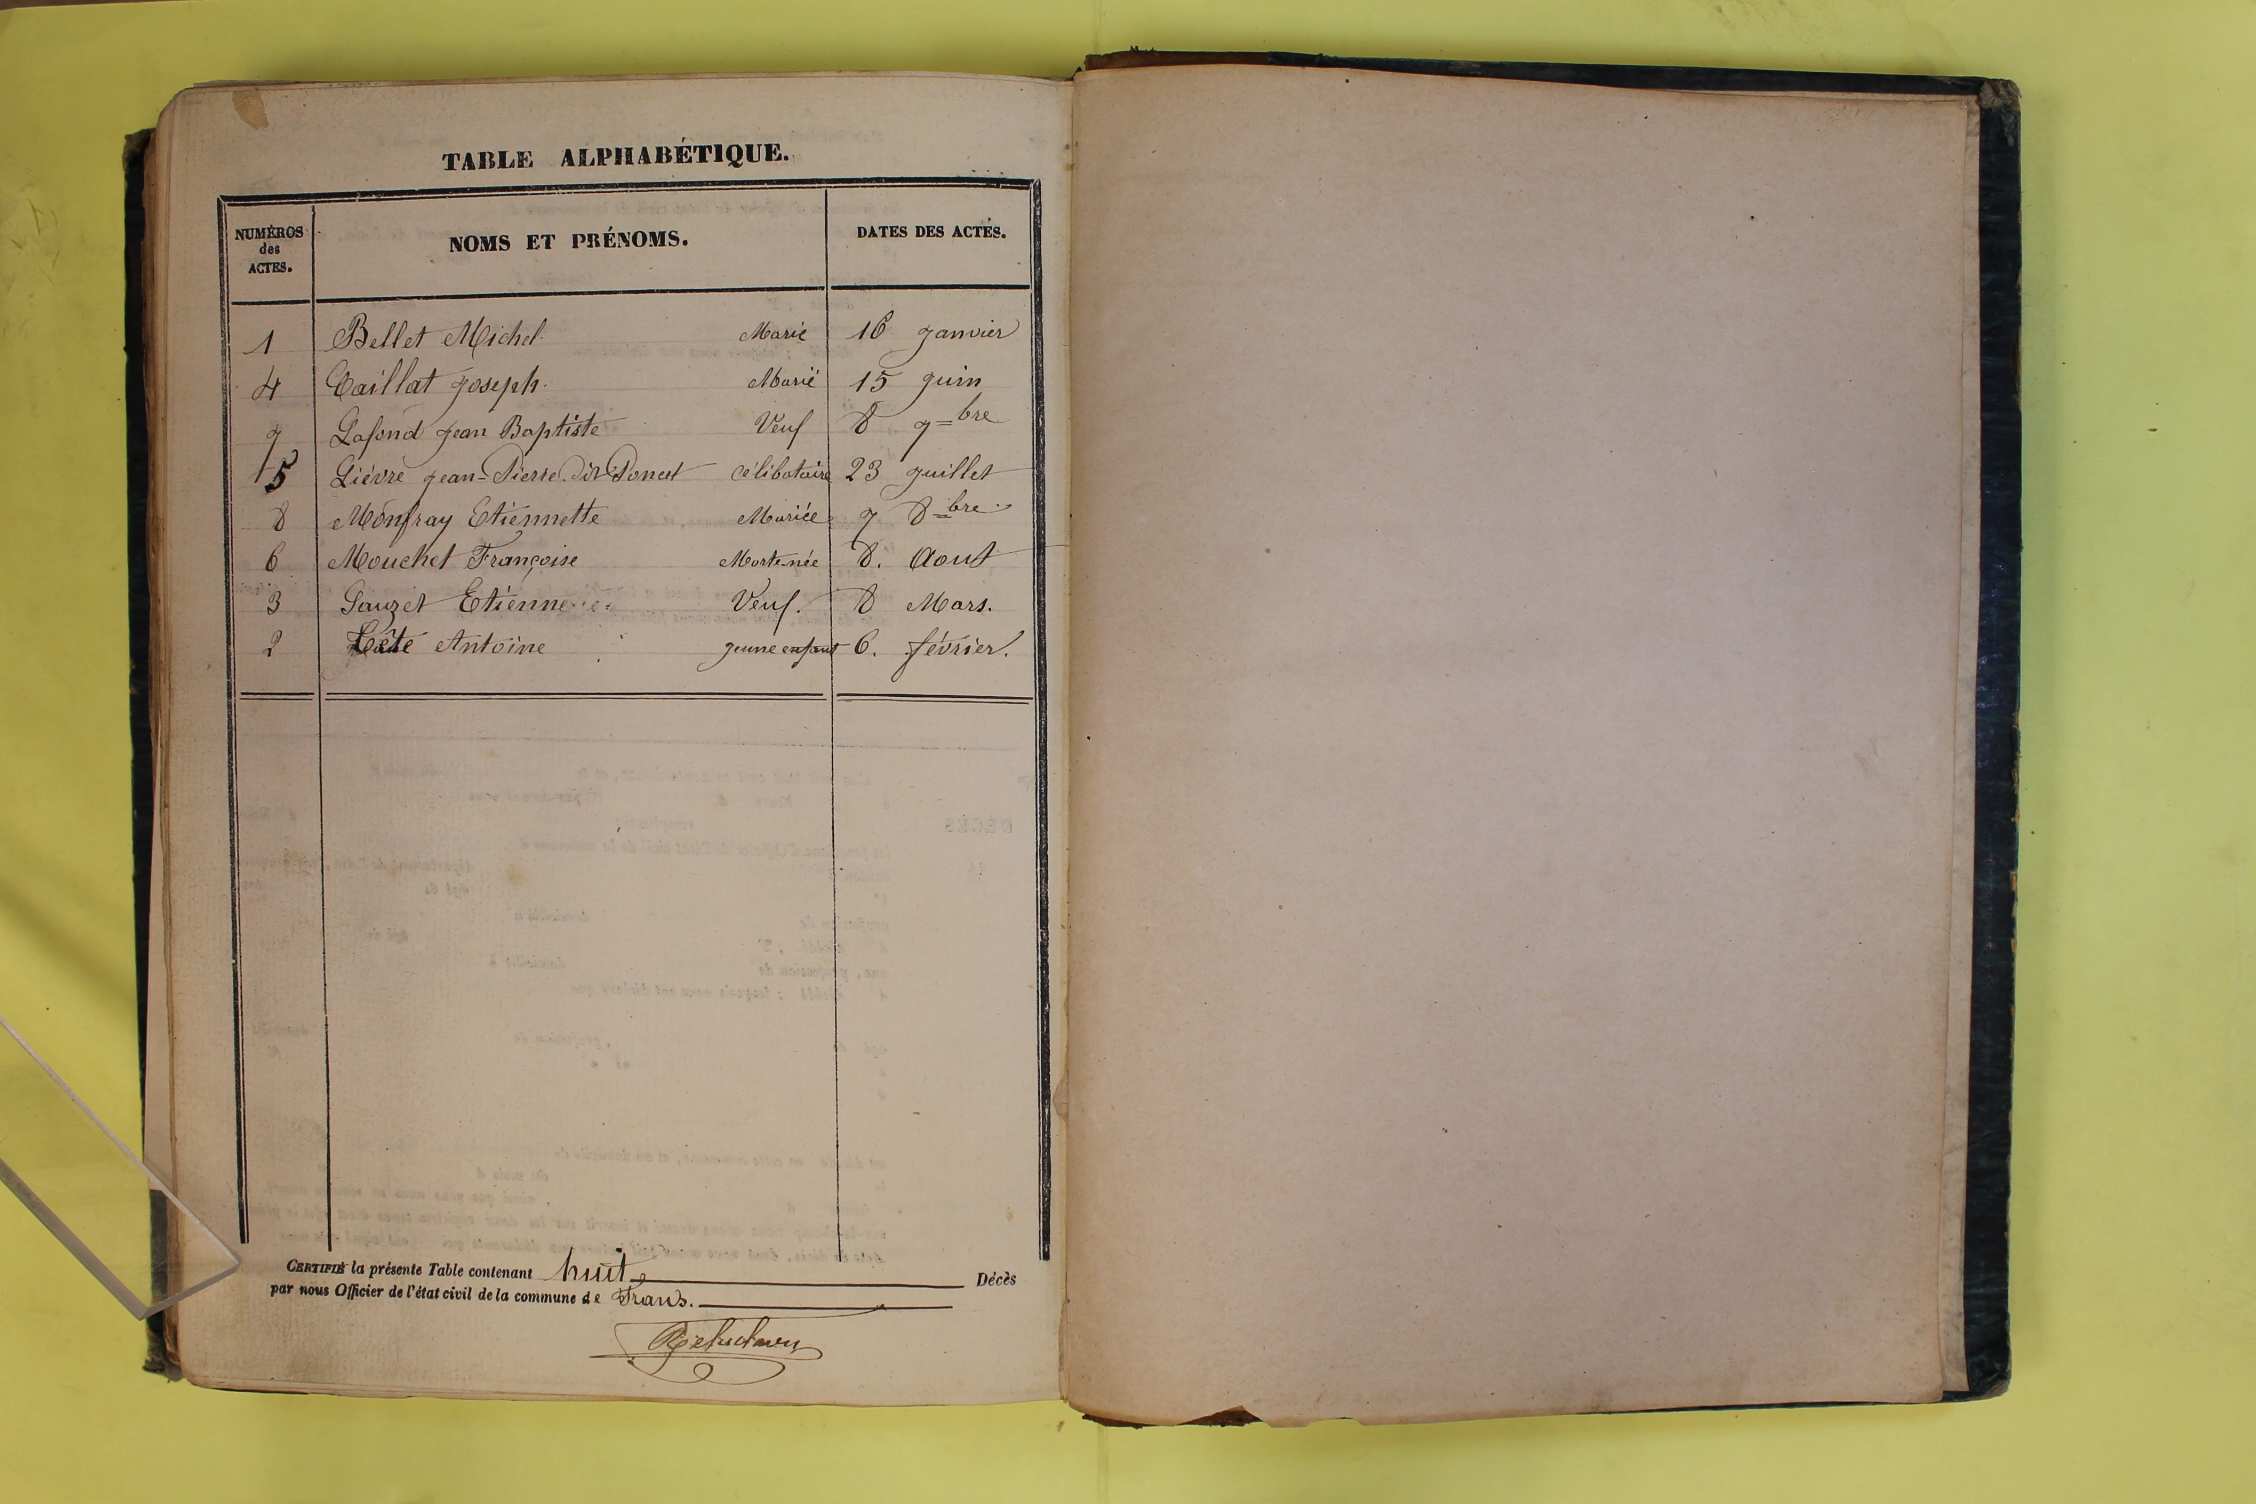 TABLE ALPHABÉTIQUE.
NUMÉROS des ACTES.
NOMS ET PRÉNOMS.
DATES DES ACTES.
1 Bellet Michel Marié 16 janvier
4 Caillat Joseph. Marié 15 juin
7 Lafond Jean Baptiste Veuf 8 7bre
5 Lièvre Jean-Pierre dit Poncet Célibataire 23 juillet
8 Monfray Etiennette Mariée 7 8bre
6 Mouchet Françoise Morte-née 8. Aout
3 Sauzet Etienne Veuf. 8 Mars.
2 Tête Antoine jeune enfant 6. février.
CERTIFIÉ la présente Table contenant huit Décès
par nous Officier de l'état civil de la commune de Frans.